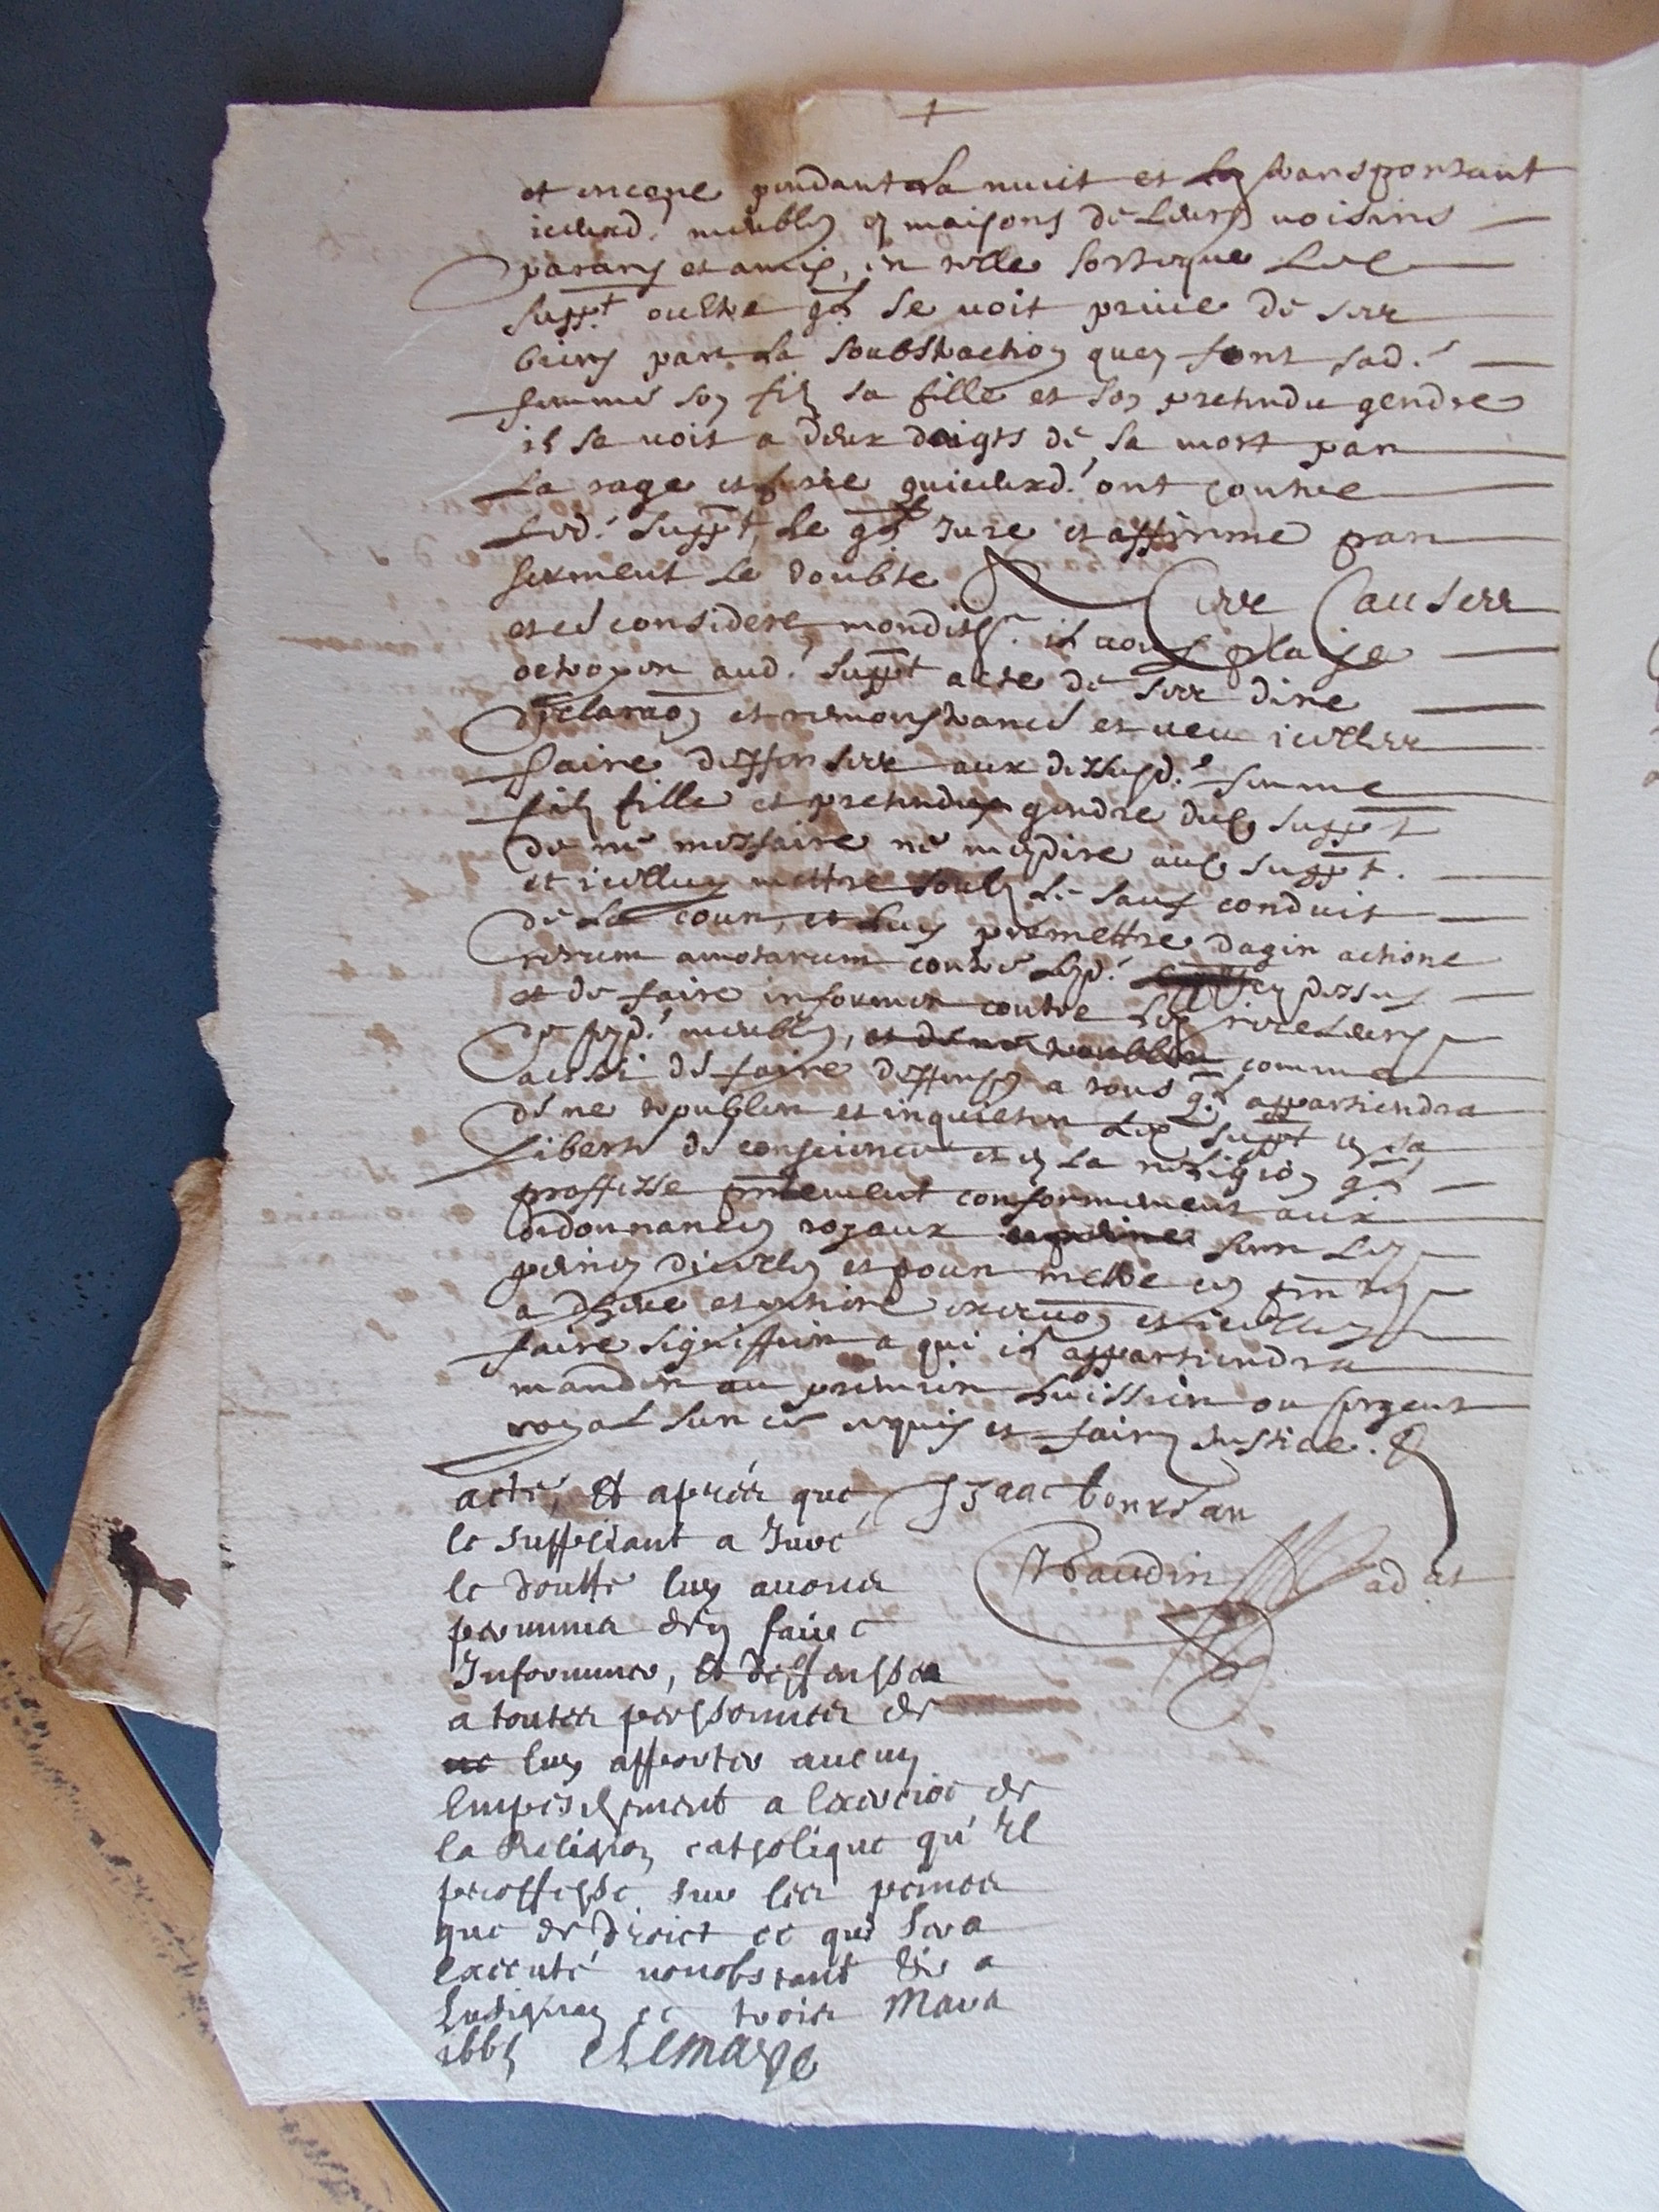 et encore pendant la nuict et les transportant
iceuxd. meubles es maisons de leurs voisins
parans et amis, en telle sorte que led
suppt oultre ql se voit privé de ses
biens par la soubstraction quen font sad.
femme son filz sa fille et son pretendu gendre
il se voit a deux doigts de la mort par
la rage et furie qu iceuxd. ont contre
led. suppt, le ql jure et affirme par
serment le doubte
Ce Causes
et ce considere, mondit sr. il vous plaise
octroyer aud. suppt acte de ses dire
declaraon et remonstrance et veu icelles
faire deffenses aux dessusd. femme
filz fille et pretendu gendre dud suppt
de ne meffaire ne mesdire aud suppt.
et icelluy mettre soubz le sauf conduit
de la cour, et luy permettre dagir actione
rerum amotarum contre lesd. cy dessus
et de faire informer contre les receleurs
de sesd. meubles, comme
aussi de faire deffenses a tous ql appartiendra
de ne troubler et inquieter led suppt en sa
liberté de conscience et en la religion ql
proffesse pntement conformement aux
ordonnances royaux sur les
peines dicelles et pour mettre les pntes
a deue et entiere execuon et icelles
faire signiffier a qui il appartiendra
mander au premier huissier ou sergent
royal sur ce requis et ferez justice.
acte, Et apres que
Izaac
le suppliant a Juré
le doutte luy avons
Baudin
permis d'en faire
Informer, Et deffenses
a toutes personnes de
ne luy apporter aucun
Empeschement a lexercice de
la Religion catholique qu'Il
proffesse sur les peines
que de droict ce qui sera
executé nonobstant &c a
Lusignan ce trois Mars